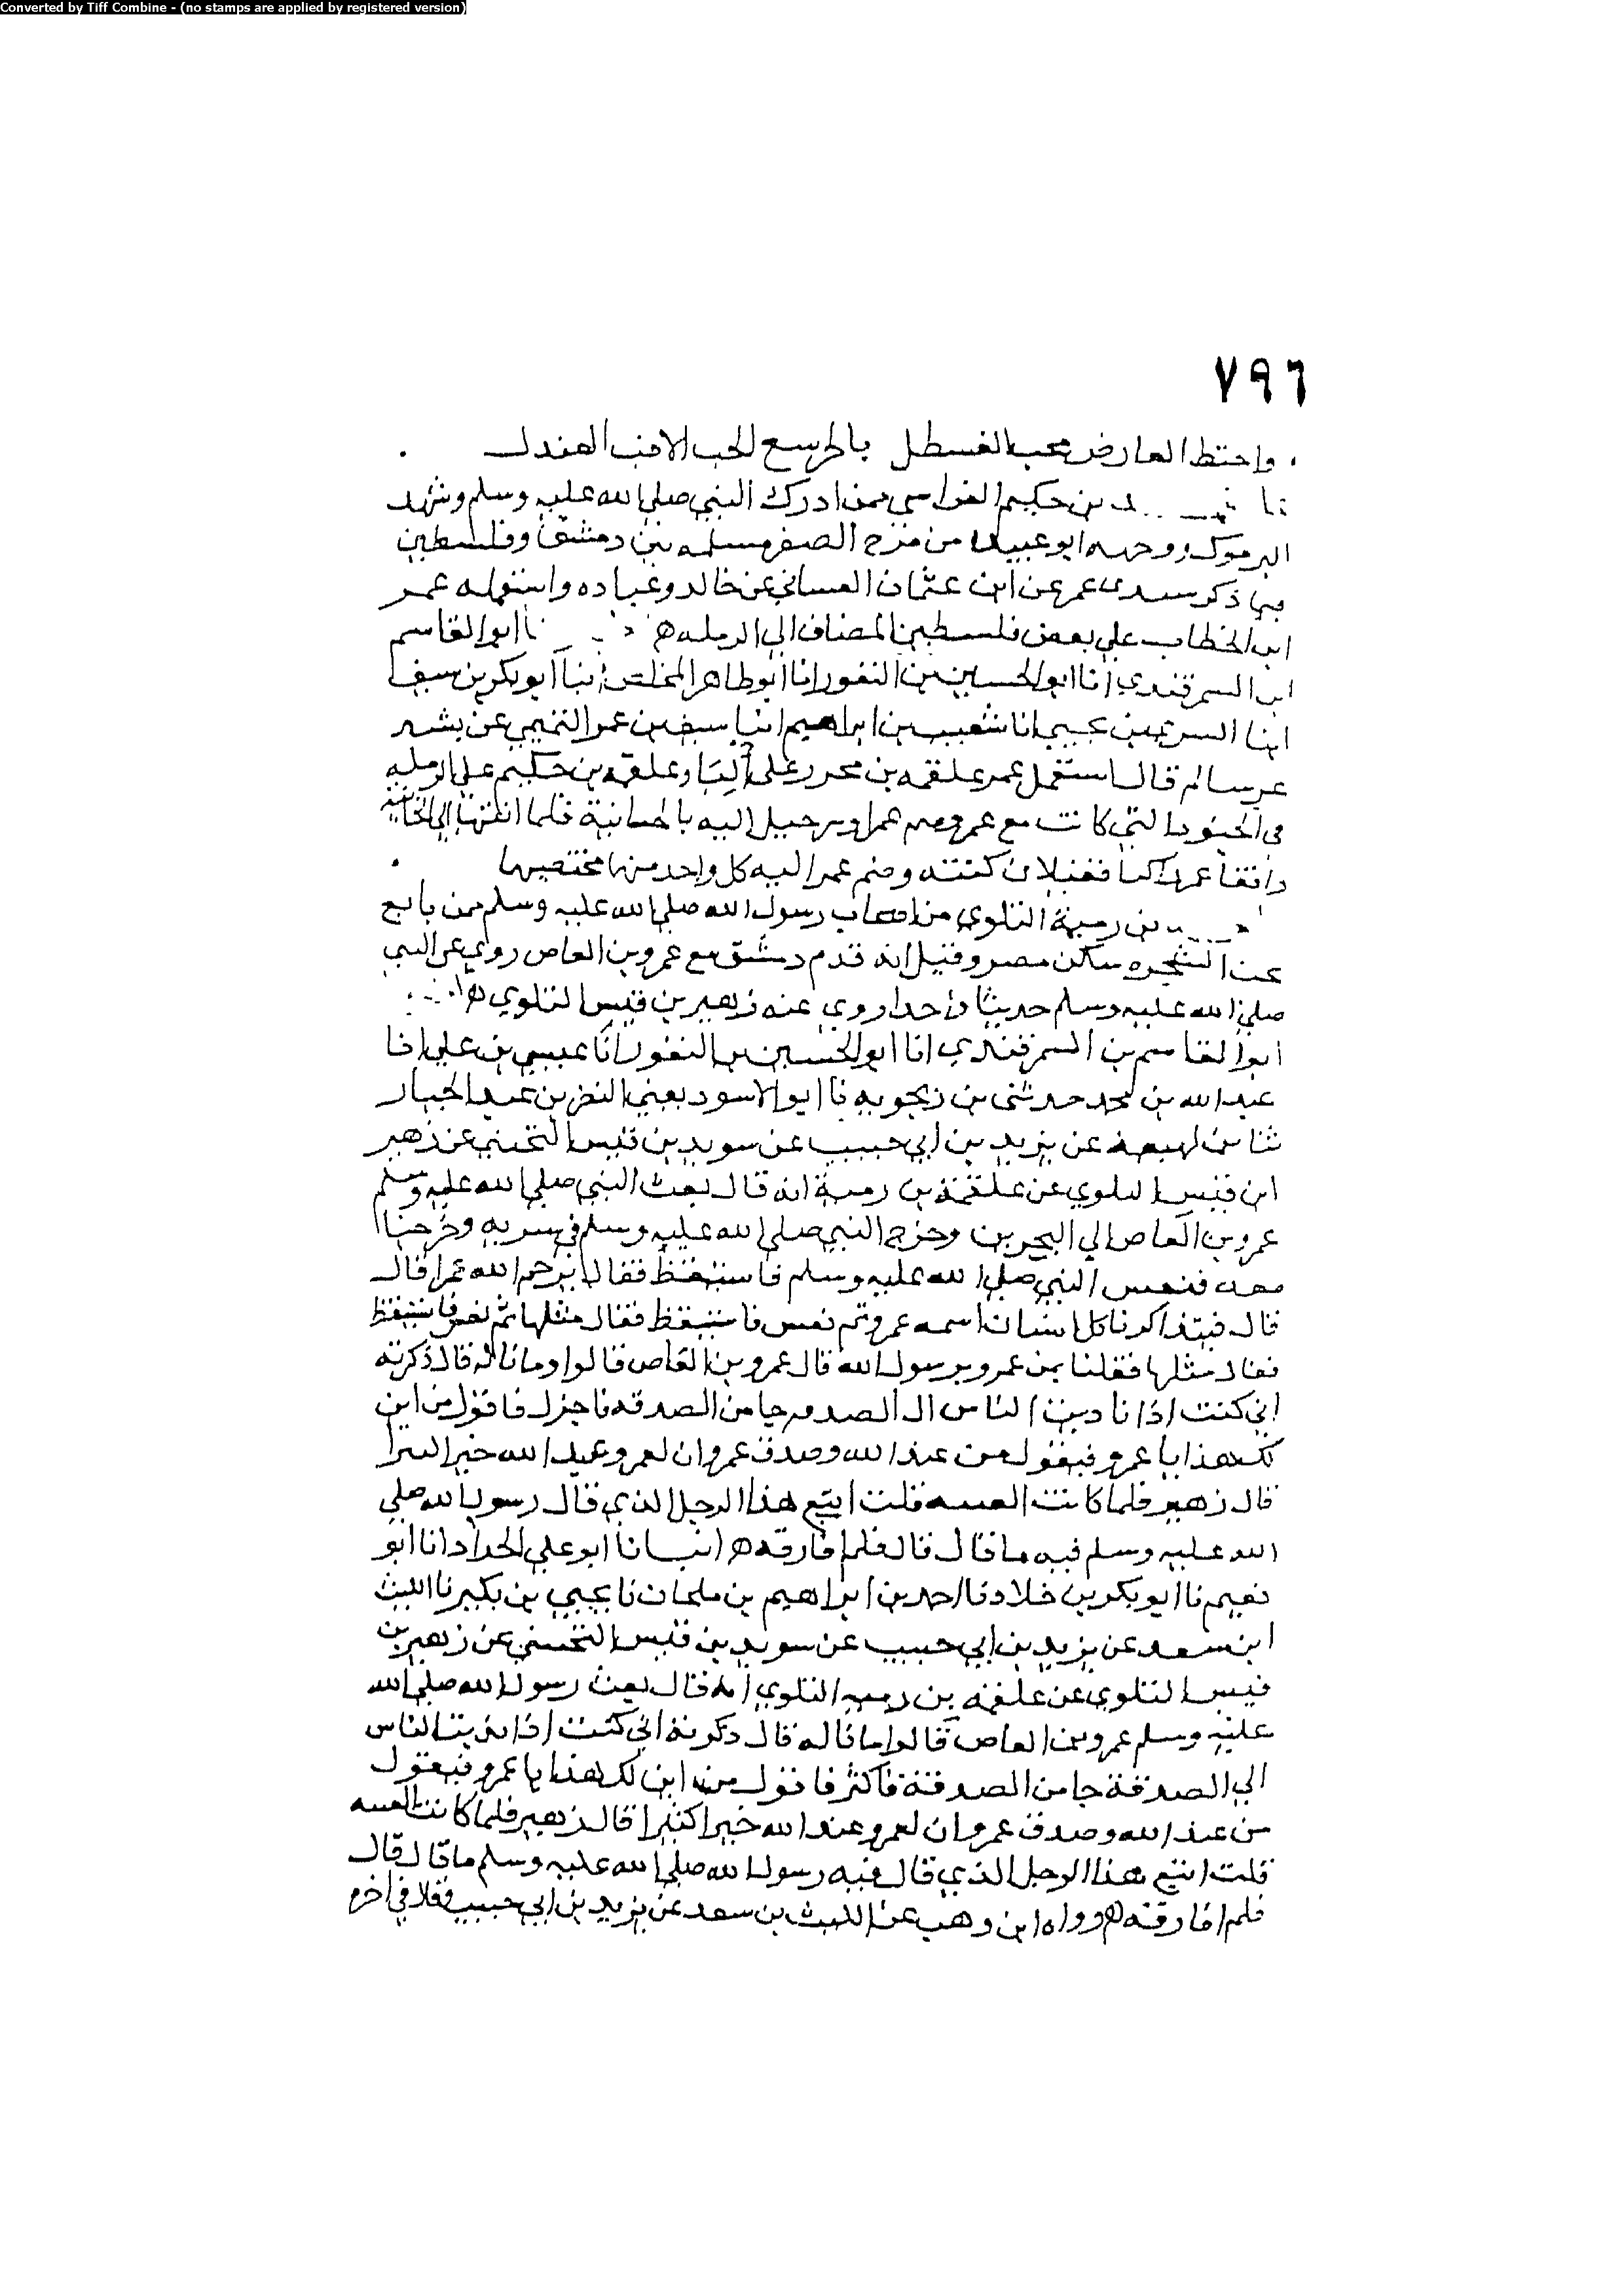 Converted by Tiff Combine - (no stamps are applied by registered version)
٧٩٦
بن حكيم الفراسي ممن ادرك النبي صلى الله عليه وسلم وشهد
اليرموك ووجهه ابو عبيدة من مرج الصفر مسلحه بين دمشق وفلسطين
فيما ذكر عمر عن ابن عثمان الغساني عن خالد وعباده واستعمله عمر
ابن الخطاب على بعض فلسطين المضاف الى الرمله ابو القاسم
ابن السمرقندي انا ابو الحسين بن النقور انا ابو طاهر المخلص انبا ابو بكر بن سيف
انا السري بن يحيى انا شعيب بن ابراهيم انبا سيف بن عمر التميمي عن بشر
عن سالم قال استعمل عمر علقمه بن محرز على ايليا وعلقمه بن حكيم على الرمله
في الجنود التي كانت مع عمرو وضم عمرا وشرحبيل اليه بالجابية فلما انتهيا الى الجابية
وافقا عمر راكبا فقبلا ركبته وضم عمر اليه كل واحد منهما محتضنهما
بن رمثة البلوي من اصحاب رسول الله صلى الله عليه وسلم ممن بايع
تحت الشجره سكن مصر وقيل انه قدم دمشق مع عمرو بن العاص روى عن النبي
صلى الله عليه وسلم حديثا واحدا روى عنه زهير بن قيس البلوي
ابو القاسم بن السمرقندي انا ابو الحسين بن النقور انا عيسى بن علي انا
عبد الله بن محمد حدثني بن زنجويه نا ابو الاسود يعني النضر بن عبد الجبار
ثنا بن لهيعه عن يزيد بن ابي حبيب عن سويد بن قيس التجيبي عن زهير
ابن قيس البلوي عن علقمة بن رمثة انه قال بعث النبي صلى الله عليه وسلم
عمرو بن العاص الي البحرين وخرج النبي صلى الله عليه وسلم في سريه وخرجنا
معه فنعس النبي صلى الله عليه وسلم فاستيقظ فقال يرحم الله عمرا قال
قال فتذاكرنا كل انسان اسمه عمرو ثم نعس فاستيقظ فقال مثلها ثم نعس فاستيقظ
فقال مثلها فقلنا من عمرو يرسول الله قال عمرو بن العاص قالوا وما باله قال ذكرته
اني كنت اذا ناديت الناس الى الصدقه جا من الصدقه فاجزل فاقول من اين
لك هذا يا عمرو فيقول من عند الله وصدق عمرو ان لعمرو عند الله خيرا كثيرا
قال زهير فلما كانت الفتنه قلت اتبع هذا الرجل الذي قال رسول الله صلى
الله عليه وسلم فيه ما قال قال فلم افارقه ه انبانا ابو علي الحداد انا ابو
نعيم نا ابو بكر بن خلاد نا احمد بن ابراهيم بن ملحان نا يحيى بن بكير نا الليث
ابن سعد عن يزيد بن ابي حبيب عن سويد بن قيس التجيبي عن زهير بن
قيس البلوي عن علقمه بن رمثه البلوي انه قال بعث رسول الله صلى الله
عليه وسلم عمرو بن العاص قالوا ما باله قال ذكرته اني كنت اذا ندبت الناس
الى الصدقة جا من الصدقة فاكثر فاقول من اين لك هذا يا عمرو فيقول
من عند الله وصدق عمرو ان لعمرو عند الله خيرا كثيرا قال زهير فلما كانت الفتنه
قلت اتبع هذا الرجل الذي قال فيه رسول الله صلى الله عليه وسلم ما قال قال
فلم افارقه ه ورواه ابن وهب عن الليث بن سعد عن يزيد بن ابي حبيب فقال في اخره